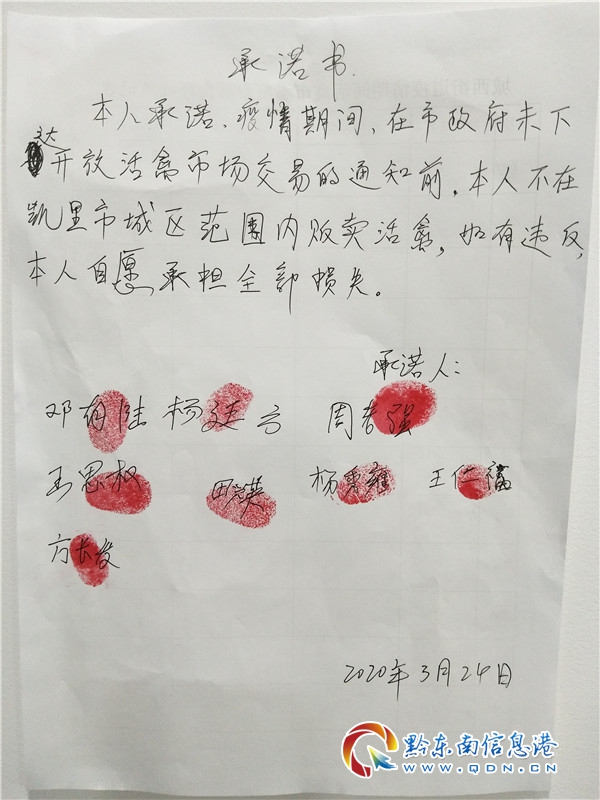 承诺书
本人承诺、疫情期间、在市政府未下
达开放活禽市场交易的通知前，本人不在
凯里市城区范围内贩卖活禽，如有违反，
本人自愿承担全部损失。
承诺人：
邓 陆 杨廷方 周 强
王思权 田 英 杨秀雍 王仁福
方长发
2020年3月24日
黔东南信息港
WWW.QDN.CN